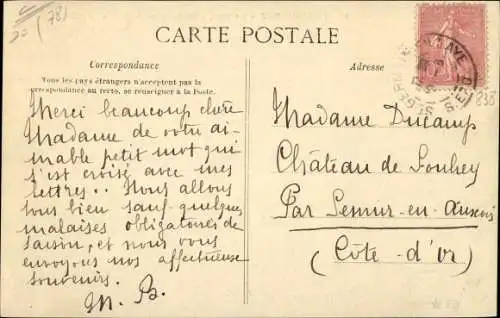 (78)
CARTE POSTALE
Correspondance
Tous les pays étrangers n'acceptent pas la
correspondance au recto, se renseigner à la Poste.
Merci beaucoup chère
Madame de votre ai-
mable petit mot qui
s'est croisé avec mes
lettres.. Nous allons
tous bien sauf quelques
malaises obligatoires de
saison, et nous vous
envoyons nos affectueuse
souvenirs.
M. B.
Adresse
Madame Ducamp
Château de Souhey
Par Semur-en-Auxois
(Côte-d'Or)
838